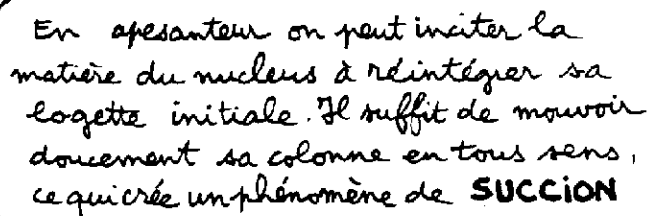 En apesanteur on peut inciter la
matière du nucleus à réintégrer sa
logette initiale. Il suffit de mouvoir
doucement sa colonne en tous sens,
ce qui crée un phénomène de SUCCION